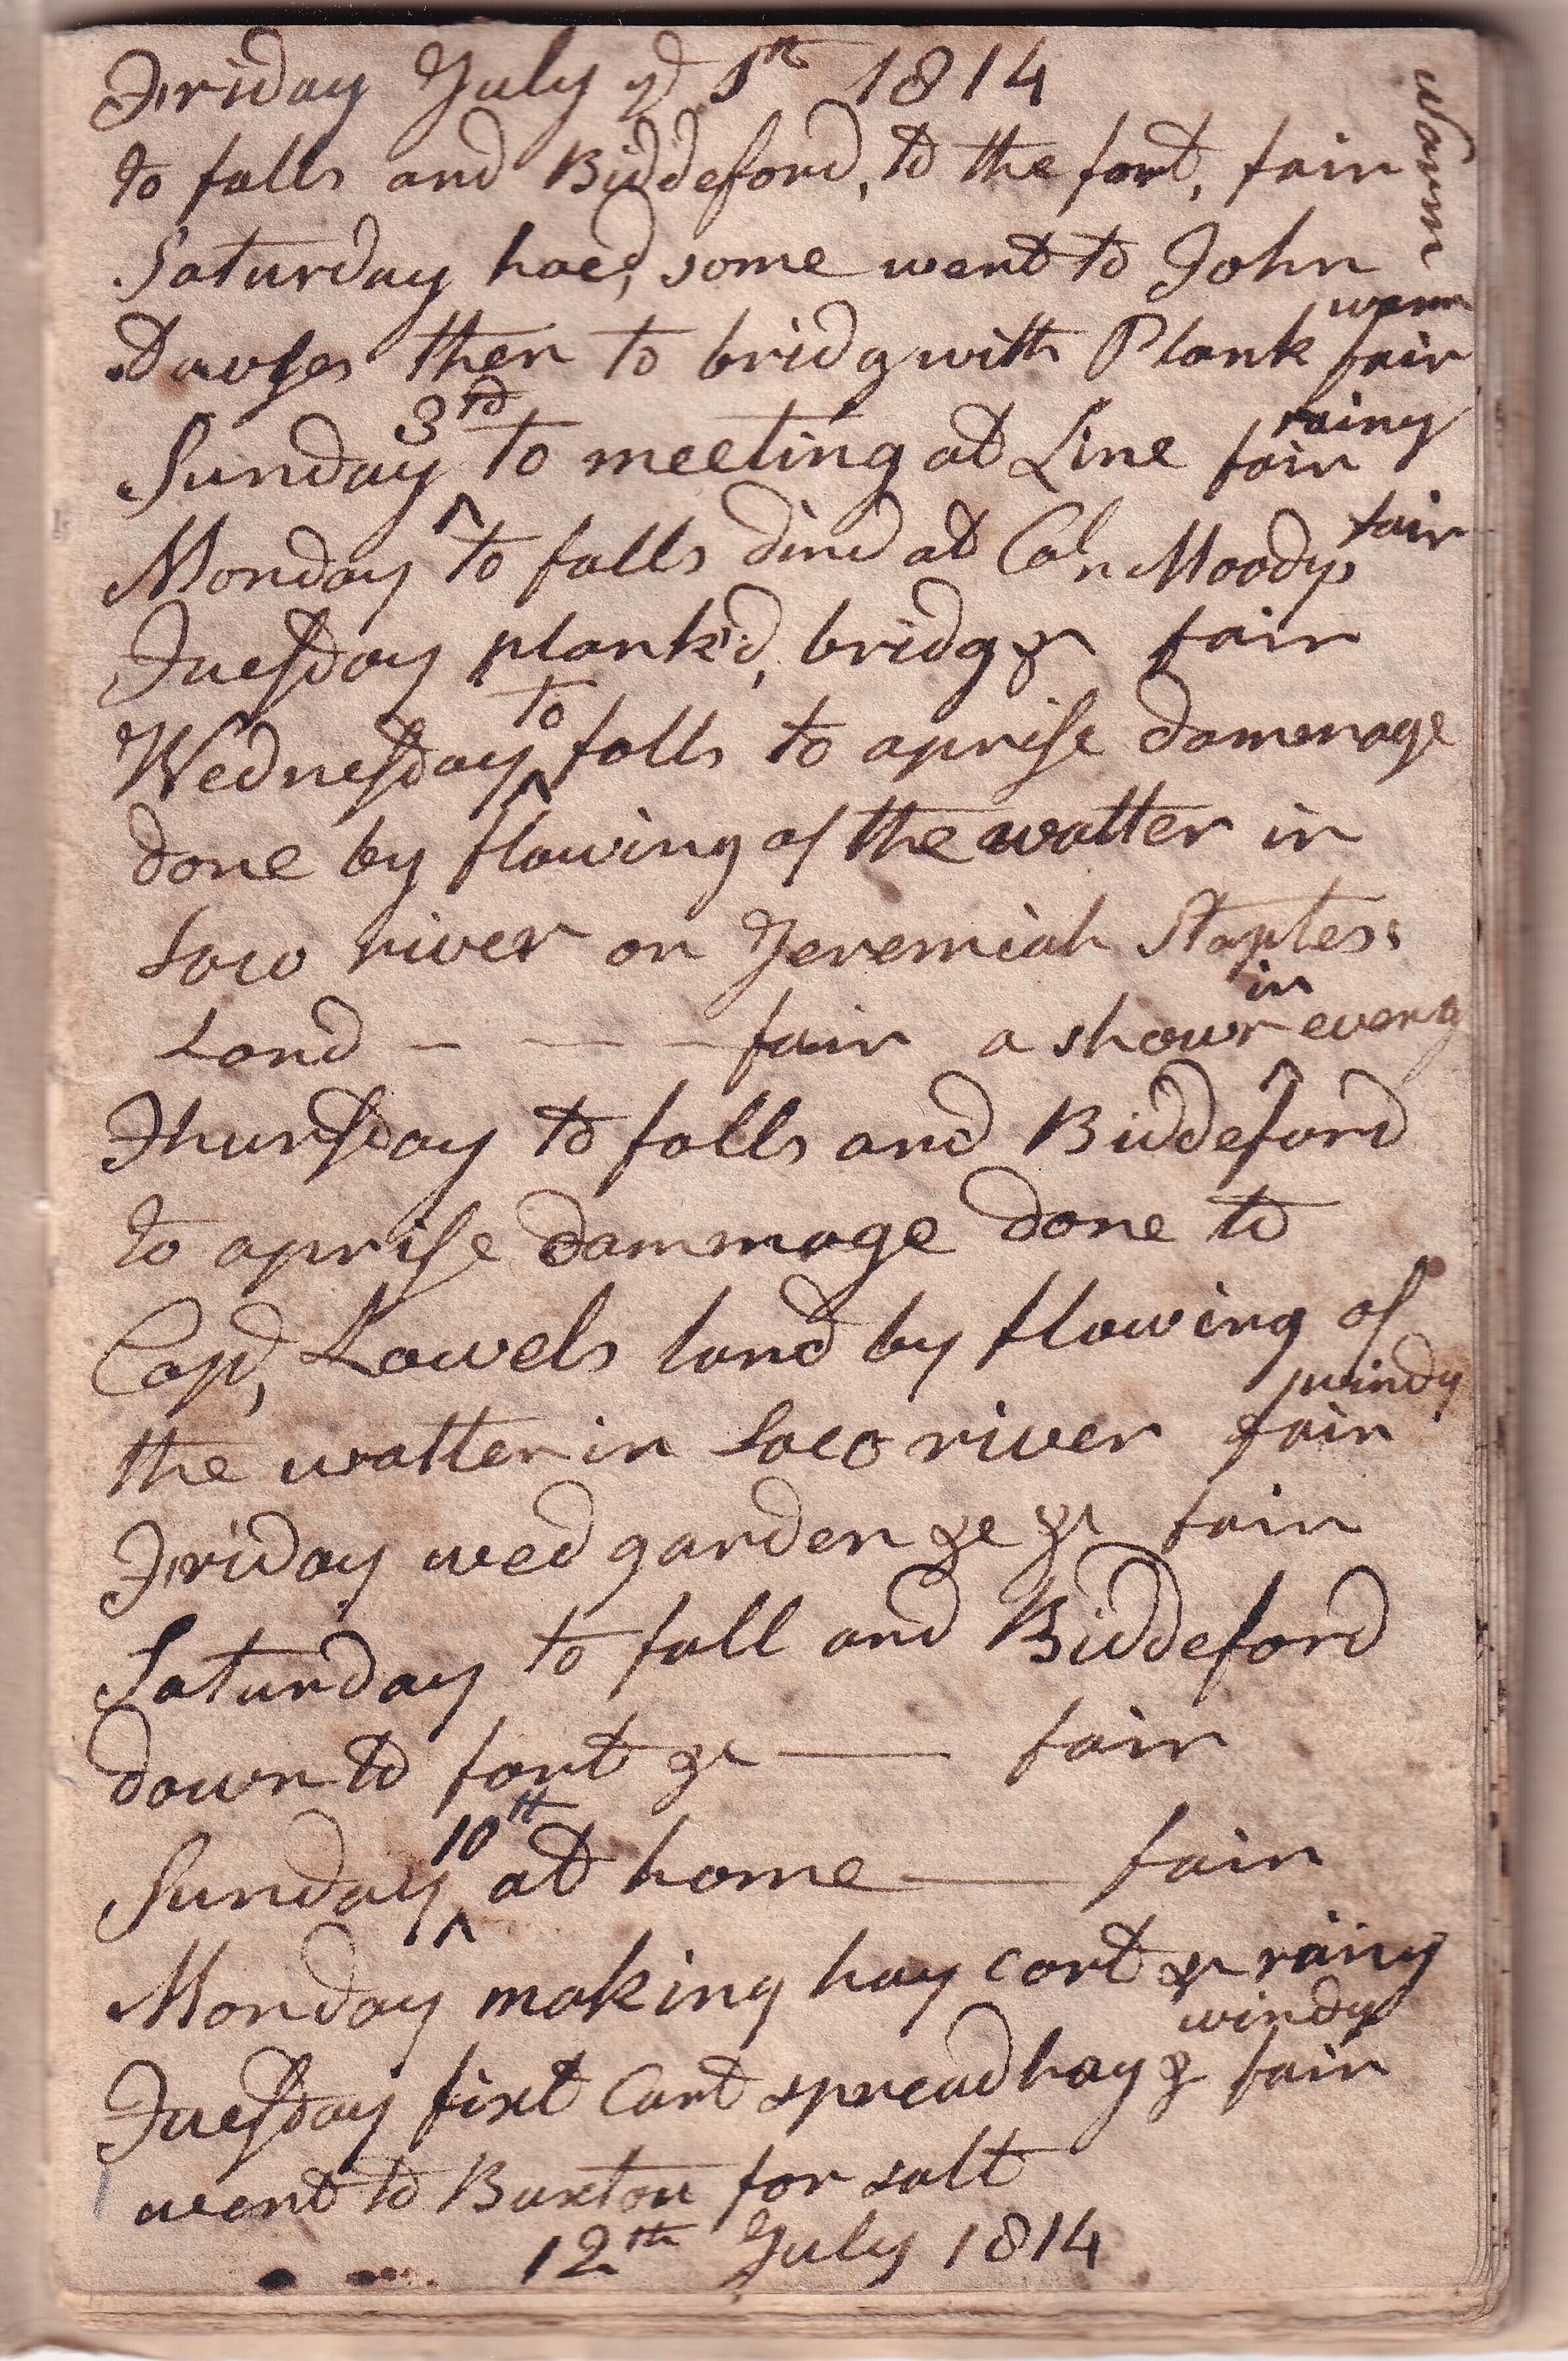 Friday July ye 1st 1814
to falls and Biddeford, to the fort, fair warm
Saturday hoed, some went to John
warm
then to bridg with Plank fair
3rd rainy
Sunday ^ to meeting at Line fair
fair
Monday to falls dind at Coln Moodys
Tuesday plank'd, bridg &c fair
to
Wednesday ^ falls to aprise dammage
done by flowing of the watter in
Saco river on Jeremiah Staples:
in
Land - - - - fair a showr ^ eveng
Thursday to falls and Biddeford
to aprise dammage done to
Capt, Lowels land by flowing of
windy
the watter in Saco river fair
Friday wed garden &c &c fair
Saturday to fall and Biddeford
down to fort &c —— fair
10th
Sunday ^ at home —— fair
Monday making hay cart &c rainy
windy
Tuesday fixt Cart spread hay & fair
went to Buxton for salt
12th July 1814